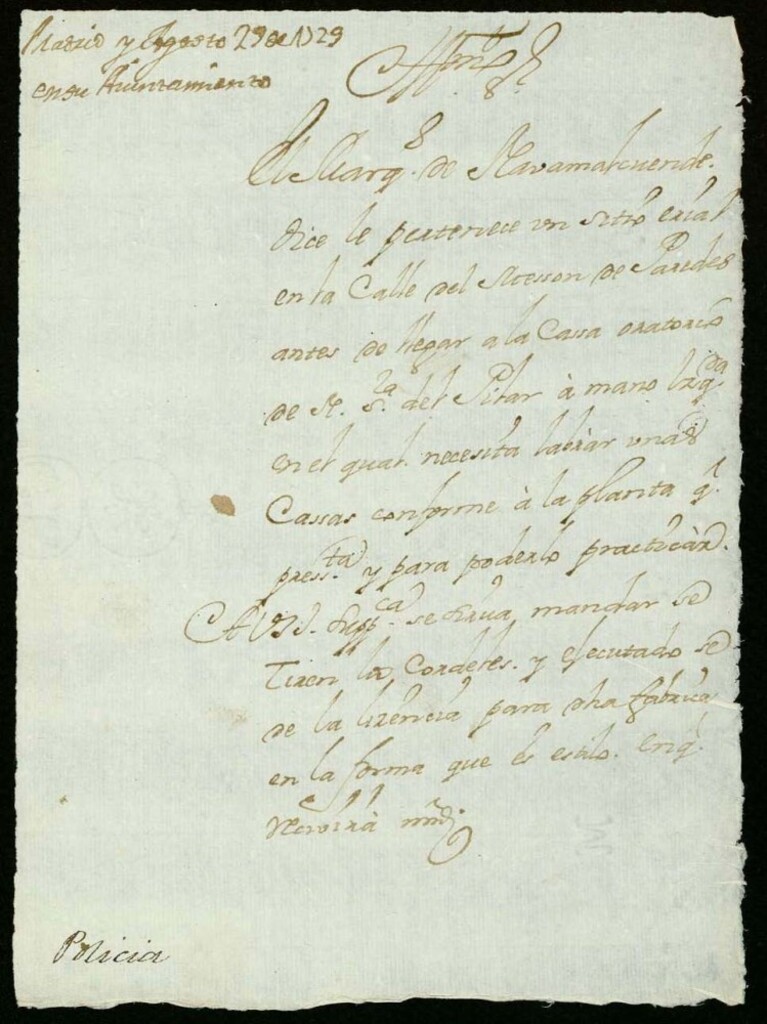 Madrid y Agosto 29 de 1729
en su Aiuntamiento
Illmo. Sr.
El Marqs. de Navamalcuende.
dice le pertenece un sitio erial
en la Calle del Messon de Paredes
antes de llegar a la Cassa oratorio
de N. Sra. del Pilar à mano Izqda
en el qual necesita labrar unas
Cassas conforme à la planta q.
pressta. y para poderlo practicàr.
A VSI. suppca. se sirva mandar se
Tiren los Cordeles. y ejecutado se
de la lizencia para dha fabrica
en la forma que es estilo. en q.
Recivirà mrd.
Policia